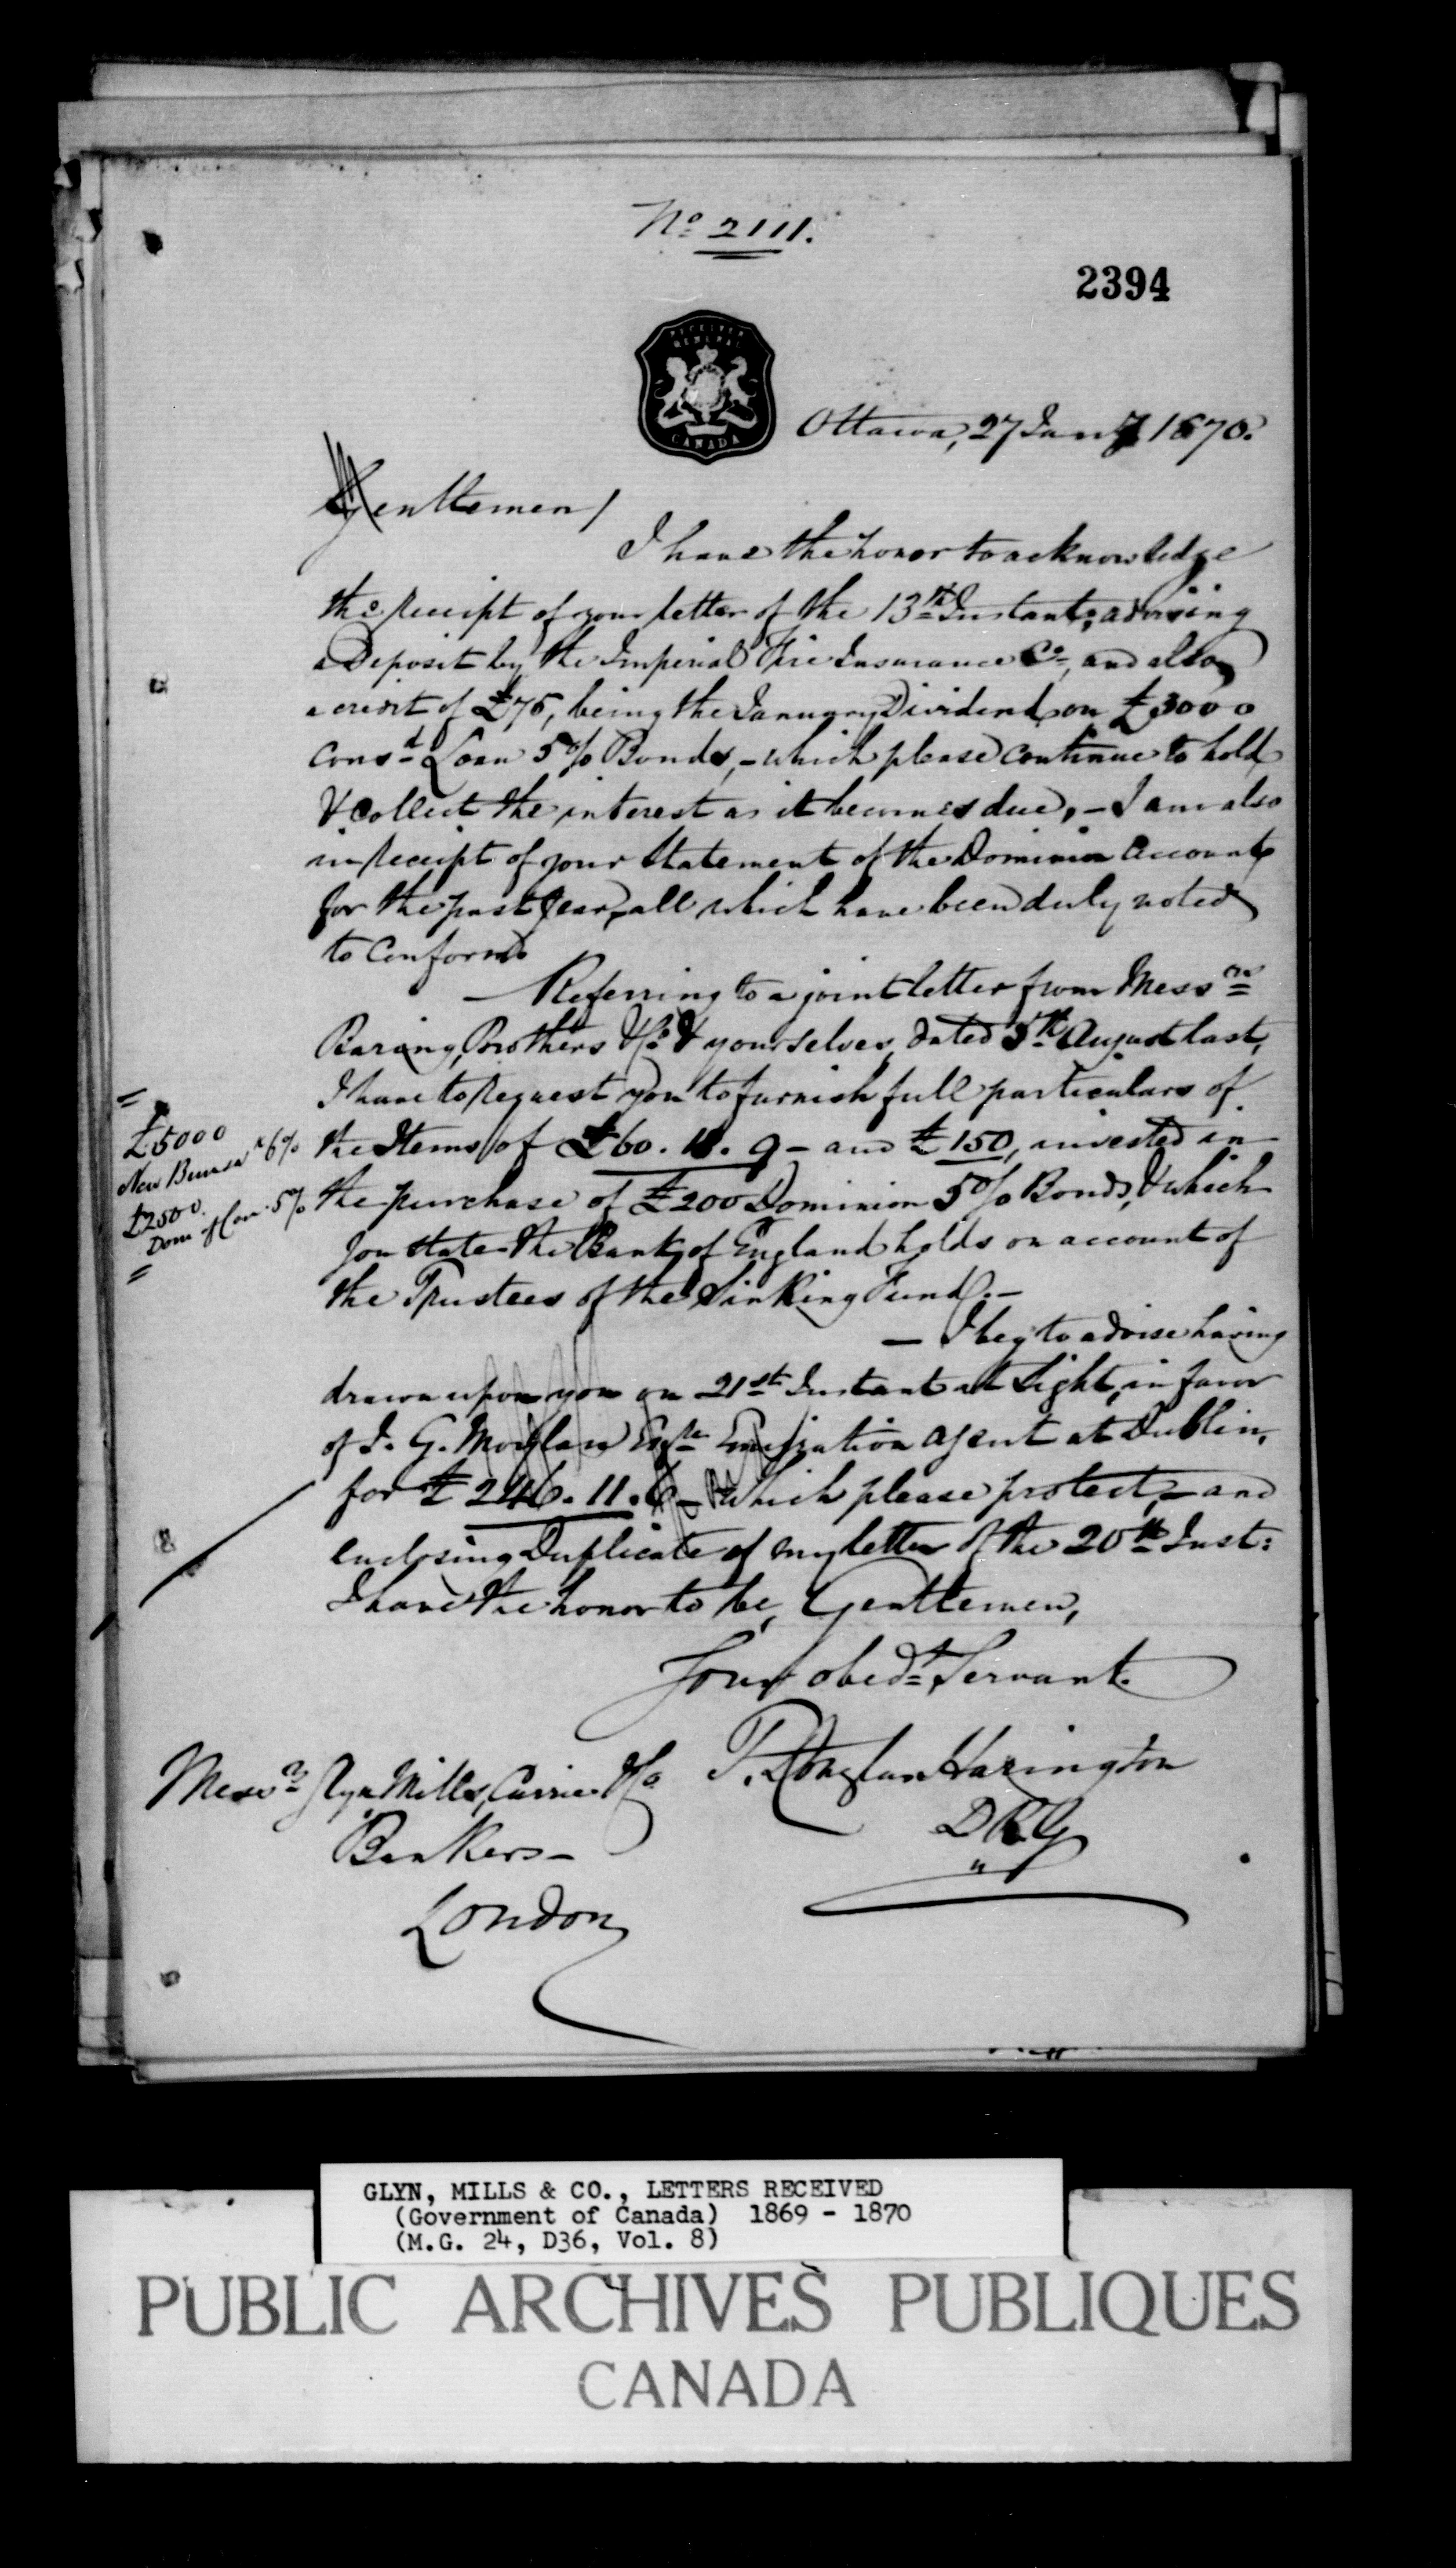 No. 2111.
2394
RECEIVER
GENERAL
CANADA
Ottawa, 27 Jany 1870.
Gentlemen/
I have the honor to acknowledge
the receipt of your letter of the 13th Instant, advising
a Deposit by the Imperial Fire Insurance Co., and also
a credit of £75, being the January Dividend on £3000
Consd Loan 5% Bonds, - which please continue to hold
& collect the interest as it becomes due, - I am also
in receipt of your Statement of the Dominion Account
for the past year, all which have been duly noted
to conform.
— Referring to a joint letter from Messrs
Baring, Brothers & Co. & yourselves, dated 5th August last,
I have to request you to furnish full particulars of
the Items of £60. 18. 9 - and £150, invested in
the purchase of £200 Dominion 5% Bonds, & which
you state the Bank of England holds on account of
the Trustees of the Sinking Fund. -
£5000
New Brunsk 6%
£2500.
Dom of Can. 5%
— I beg to advise having
drawn upon you on 21st Instant at Sight, in favor
of J. G. Moylan Esqre Emigration Agent at Dublin,
for £246. 11. 6 - which please protect, - and
enclosing Duplicate of my letter of the 20th Inst:
I have the honor to be, Gentlemen,
Your obedt Servant.
T. Douglas Harington
D R G
Messrs Glyn Mills, Currie & Co.
Bankers -
London
GLYN, MILLS & CO., LETTERS RECEIVED
(Government of Canada) 1869 - 1870
(M.G. 24, D36, Vol. 8)
PUBLIC ARCHIVES PUBLIQUES
CANADA